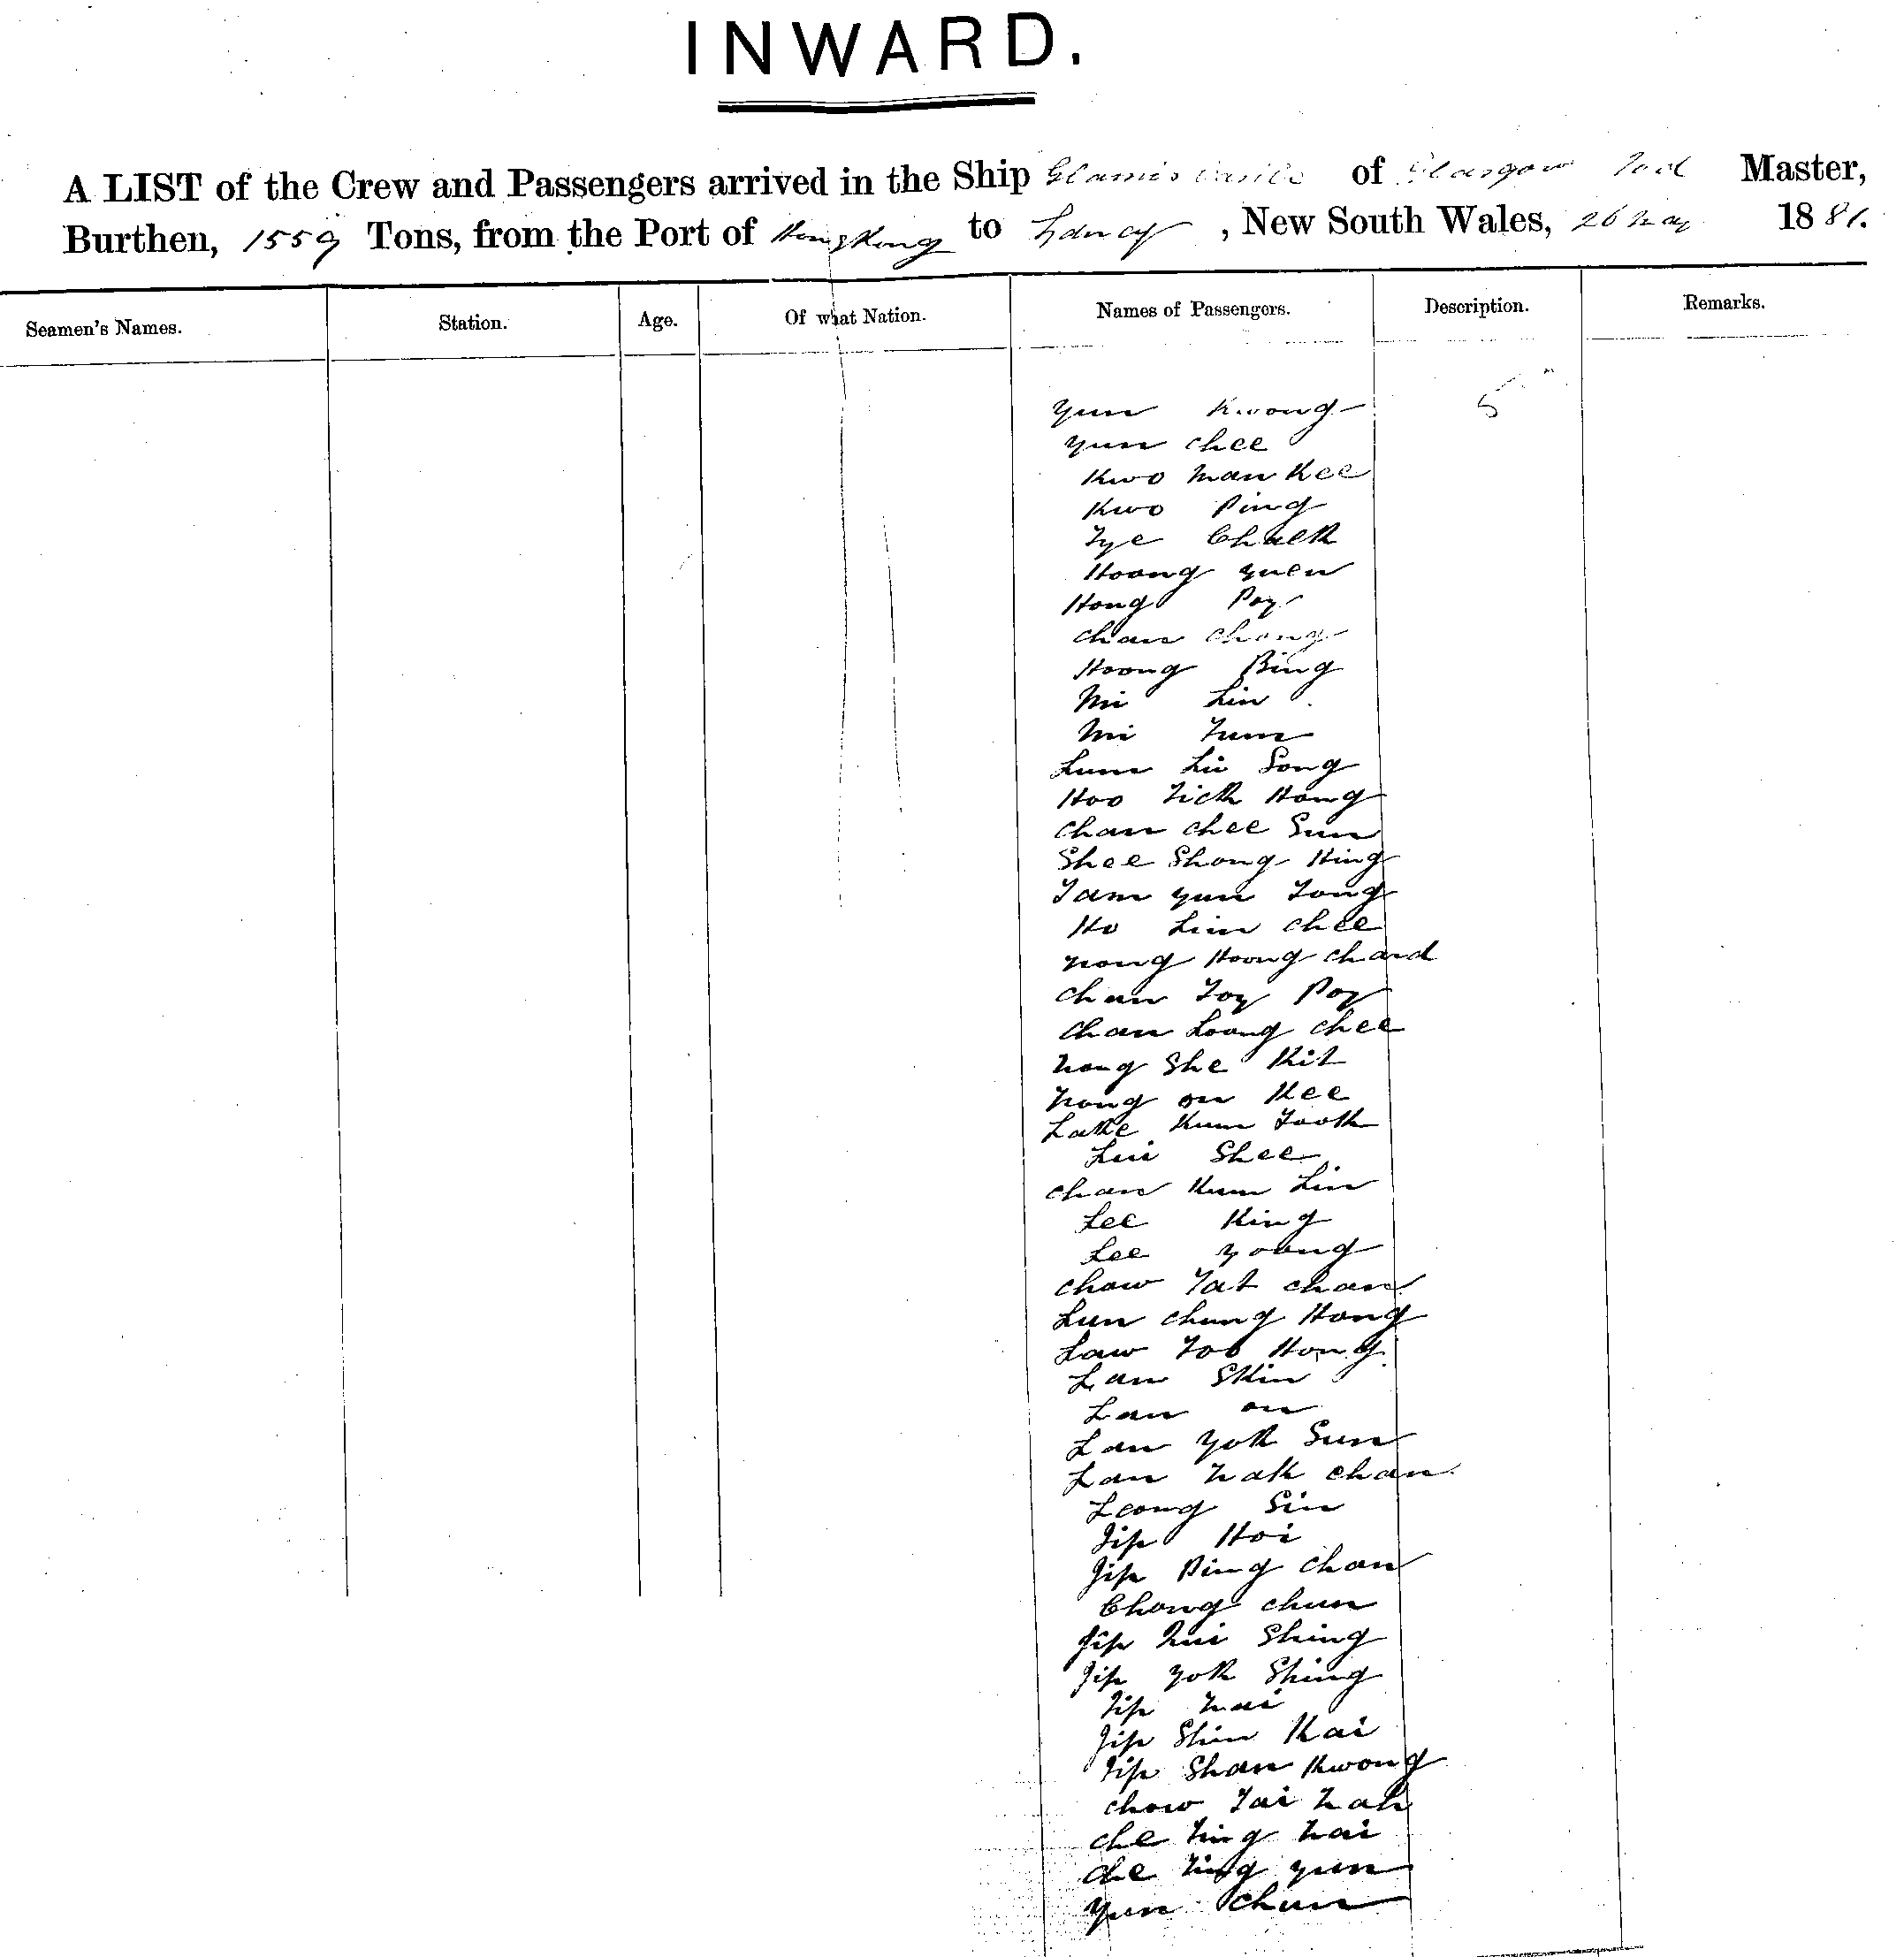 INWARD.
A LIST of the Crew and Passengers arrived in the Ship Glamis Castle of Glasgow Tod Master,
Burthen, 1559 Tons, from the Port of Hong Kong to Sydney, New South Wales, 26 May 1881.
Seamen's Names. Station. Age. Of what Nation. Names of Passengers. Description. Remarks.
Yun Kwong 5
Yun Chee
Kwo Man Kee
Kwo Ping
Tye Chalk
Hoong Yuen
Hong Poy
Chan Chong
Hoong Bing
Mi Lin
Mi Tum
Lum Lii Song
Hoo Tick Hong
Chan Chee Sun
Shee Shong King
Tam Yun Tong
Ho Lim Chee
Nong Hoong Chard
Chan Toy Poy
Chan Loong Chee
Nong She Kit
Nong on Kee
Lake Kum Took
Lui Shee
Chan Kum Lin
Lee King
Lee Young
Chow Tat Chan
Lun Chung Hong
Law Too Hong
Lan Skin
Lan on
Lan Yok Sun
Lan Nak Chan
Leong Sin
Jip Hoi
Jip Ping Chan
Chong Chun
Jip Shing
Jip Yok Shing
Jip Nai
Jip Shin Kai
Jip Shan Kwong
Chow Tai Nah
Che Ting Nai
Che Ting Yun
Yun Chun